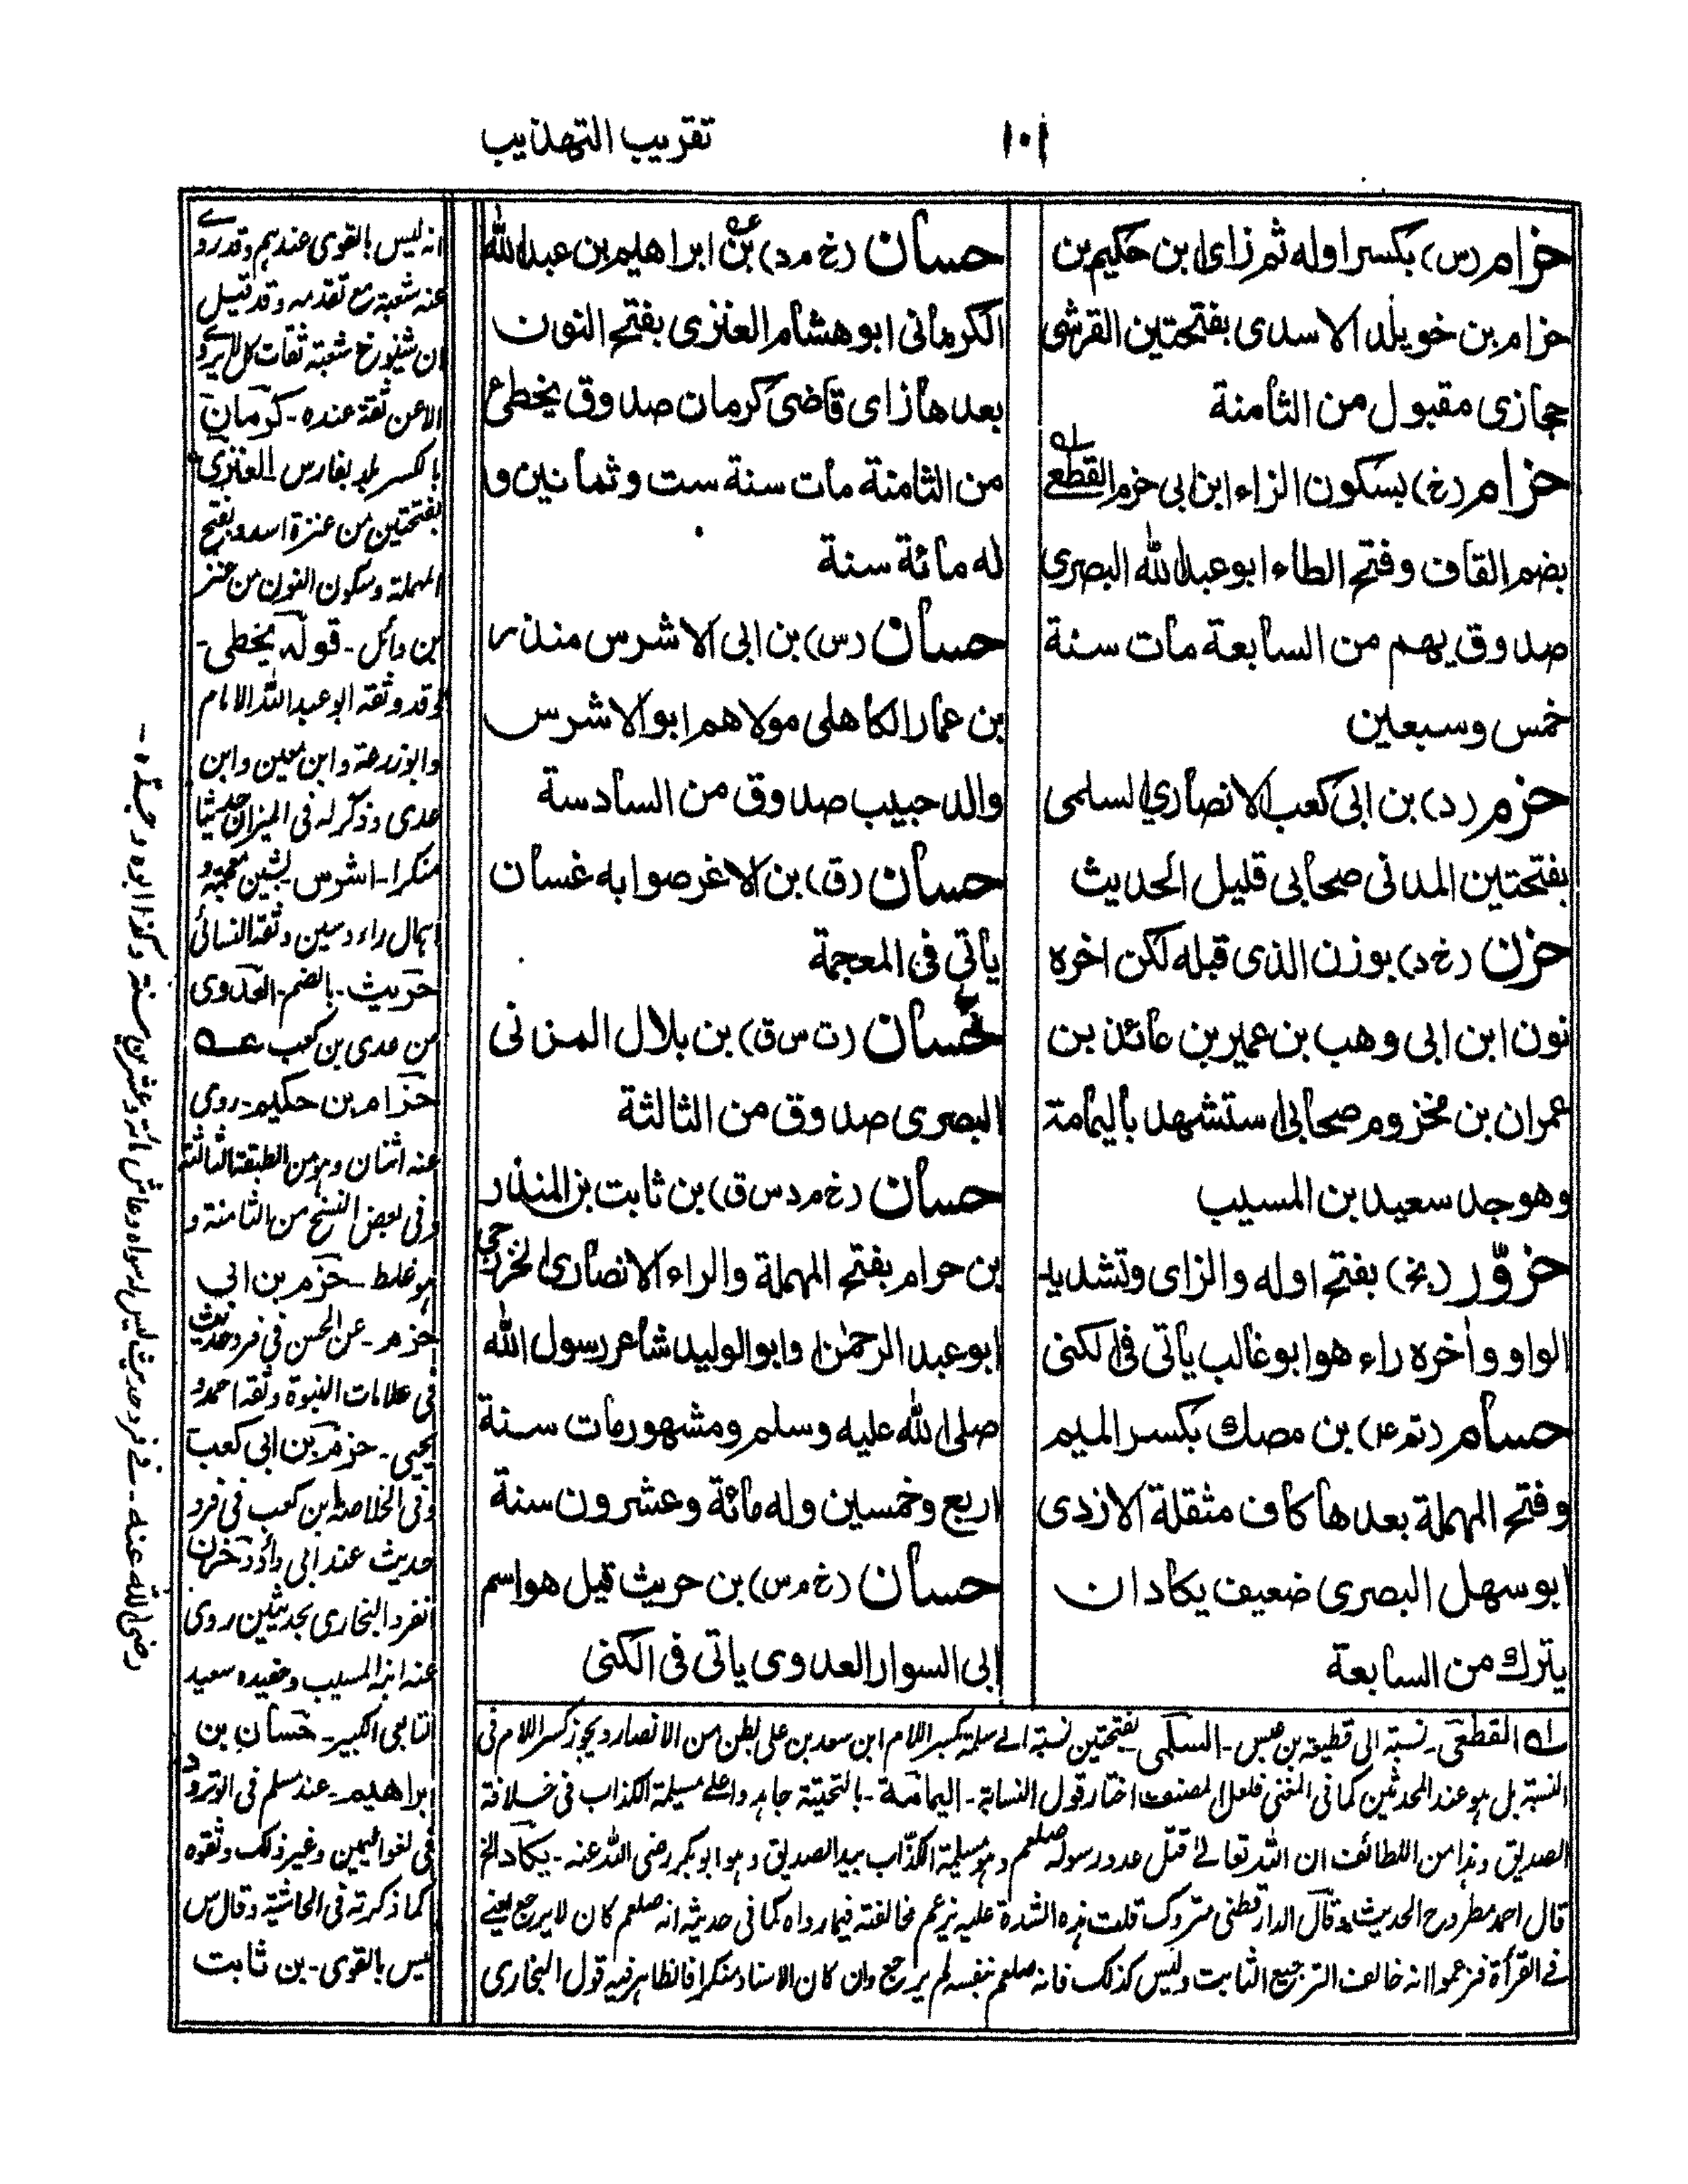 تقریب التهذیب
۱۰۱
حزام (س) بکسر اوله ثم زای ابن حکیم بن
حزام بن خویلد الاسدی بفتحتین القرشی
حجازی مقبول من الثامنة
حزام (خ) بسکون الزاء ابن ابی حزم القطعی
بضم القاف وفتح الطاء ابو عبد الله البصری
صدوق یهم من السابعة مات سنة
خمس وسبعین
حزم (د) بن ابی کعب الانصاری السلمی
بفتحتین المدنی صحابی قلیل الحدیث
حزن (خ د) بوزن الذی قبله لکن اخره
نون ابن ابی وهب بن عمیر بن عائذ بن
عمران بن مخزوم صحابی استشهد بالیمامة
وهو جد سعید بن المسیب
حزوّر (بخ) بفتح اوله والزای وتشدید
الواو واٰخره راء هو ابو غالب یاتی فی الکنی
حسام (تم ع) بن مصك بکسر المیم
وفتح المهملة بعدها کاف مثقلة الازدی
ابو سهل البصری ضعیف یکاد ان
یترك من السابعة
حسان (خ م د) بن ابراهیم بن عبد الله
الکرمانی ابو هشام العنزی بفتح النون
بعدها زای قاضی کرمان صدوق یخطئ
من الثامنة مات سنة ست وثمانین و
له مائة سنة
حسان (س) بن ابی الاشرس منذر
بن عمار الکاهلی مولاهم ابو الاشرس
والد حبیب صدوق من السادسة
حسان (ق) بن الاغر صوابه غسان
یاتی فی المعجمة
حسان (ت س ق) بن بلال المزنی
البصری صدوق من الثالثة
حسان (خ م د س ق) بن ثابت بن المنذر
بن حرام بفتح المهملة والراء الانصاری الخزرجی
ابو عبد الرحمٰن وابو الولید شاعر رسول الله
صلی الله علیه وسلم ومشهور مات سنة
اربع وخمسین وله مائة وعشرون سنة
حسان (خ م س) بن حریث قیل هو اسم
ابی السوار العدوی یاتی فی الکنی
انه لیس بالقوی عندهم وقد روے
عنه شعبة مع تقدمه وقد قیل
ان شیوخ شعبة ثقات کان لا یروی
الا عن ثقة عنده۔ کرمان
بالکسر بلد بفارس۔ العنزی
بفتحتین من عنزة اسد وبفتح
المهملة وسکون النون من عنز
بن وائل۔ قوله یخطی۔
وقد وثقه ابو عبد الله الامام
وابو زرعة وابن معین وابن
عدی وذکر له فی المیزان حدیثا
منکرا۔ اشرس۔ بشین معجمة و
اهمال راء وسین وثقه النسائی
حریث۔ بالضم۔ العدوی
من عدی بن کعب عـه
حزام بن حکیم۔ روی
عنه اثنان وهو من الطبقة الثالثة
وفی بعض النسخ من الثامنة و
هو غلط۔ حزم بن ابی
حزم۔ عن الحسن فی فرد حدیث
فی علامات النبوة وثقه احمد و
یحیی۔ حزم بن ابی کعب
وفی الخلاصة ابن کعب فی فرد
حدیث عند ابی داؤد۔ حزن
انفرد البخاری بحدیثین روی
عنه ابنه المسیب وحفیده سعید
التابعی الکبیر۔ حسان بن
ابراهیم۔ عند مسلم فی الوتر و
فی لغو الیمین وغیر ذلک وثقوه
کما ذکرته فی الحاشیة وقال س
لیس بالقوی۔ بن ثابت
رضی الله عنه۔ فے فرد حدیث لیس له سواه وعاش مائة وعشرین سنة وکذا ابوه وجده۔
له القطعی۔ نسبة الی قطیعة بن عبس۔ السلمی بفتحتین نسبة الے سلمة بکسر اللام ابن سعد بن علی بطن من الانصار ویجوز کسر اللام فی
النسبة بل هو عند المحدثین کما فی المغنی فلعل المصنف اختار قول النسابة۔ الیمامة۔ بالتحتیة جاهدوا علے مسیلمة الکذاب فی خلافة
الصدیق وهذا من اللطائف ان الله تعالے قتل عدو رسوله صلعم وهو مسیلمة الکذّاب بید الصدیق وهو ابو بکر رضی الله عنه۔ یکاد الخ
قال احمد مطروح الحدیث وقال الدارقطنی متروک قلت هذه الشدة علیه بزعم مخالفته فیما رواه کما فی حدیثه انه صلعم کان لا یرجع یعنے
فے القرأة فزعموا انه خالف الترجیع الثابت ولیس کذلک فانه صلعم بنفسه لم یرجع وان کان الاسناد منکرا فالظاهر فیه قول البخاری